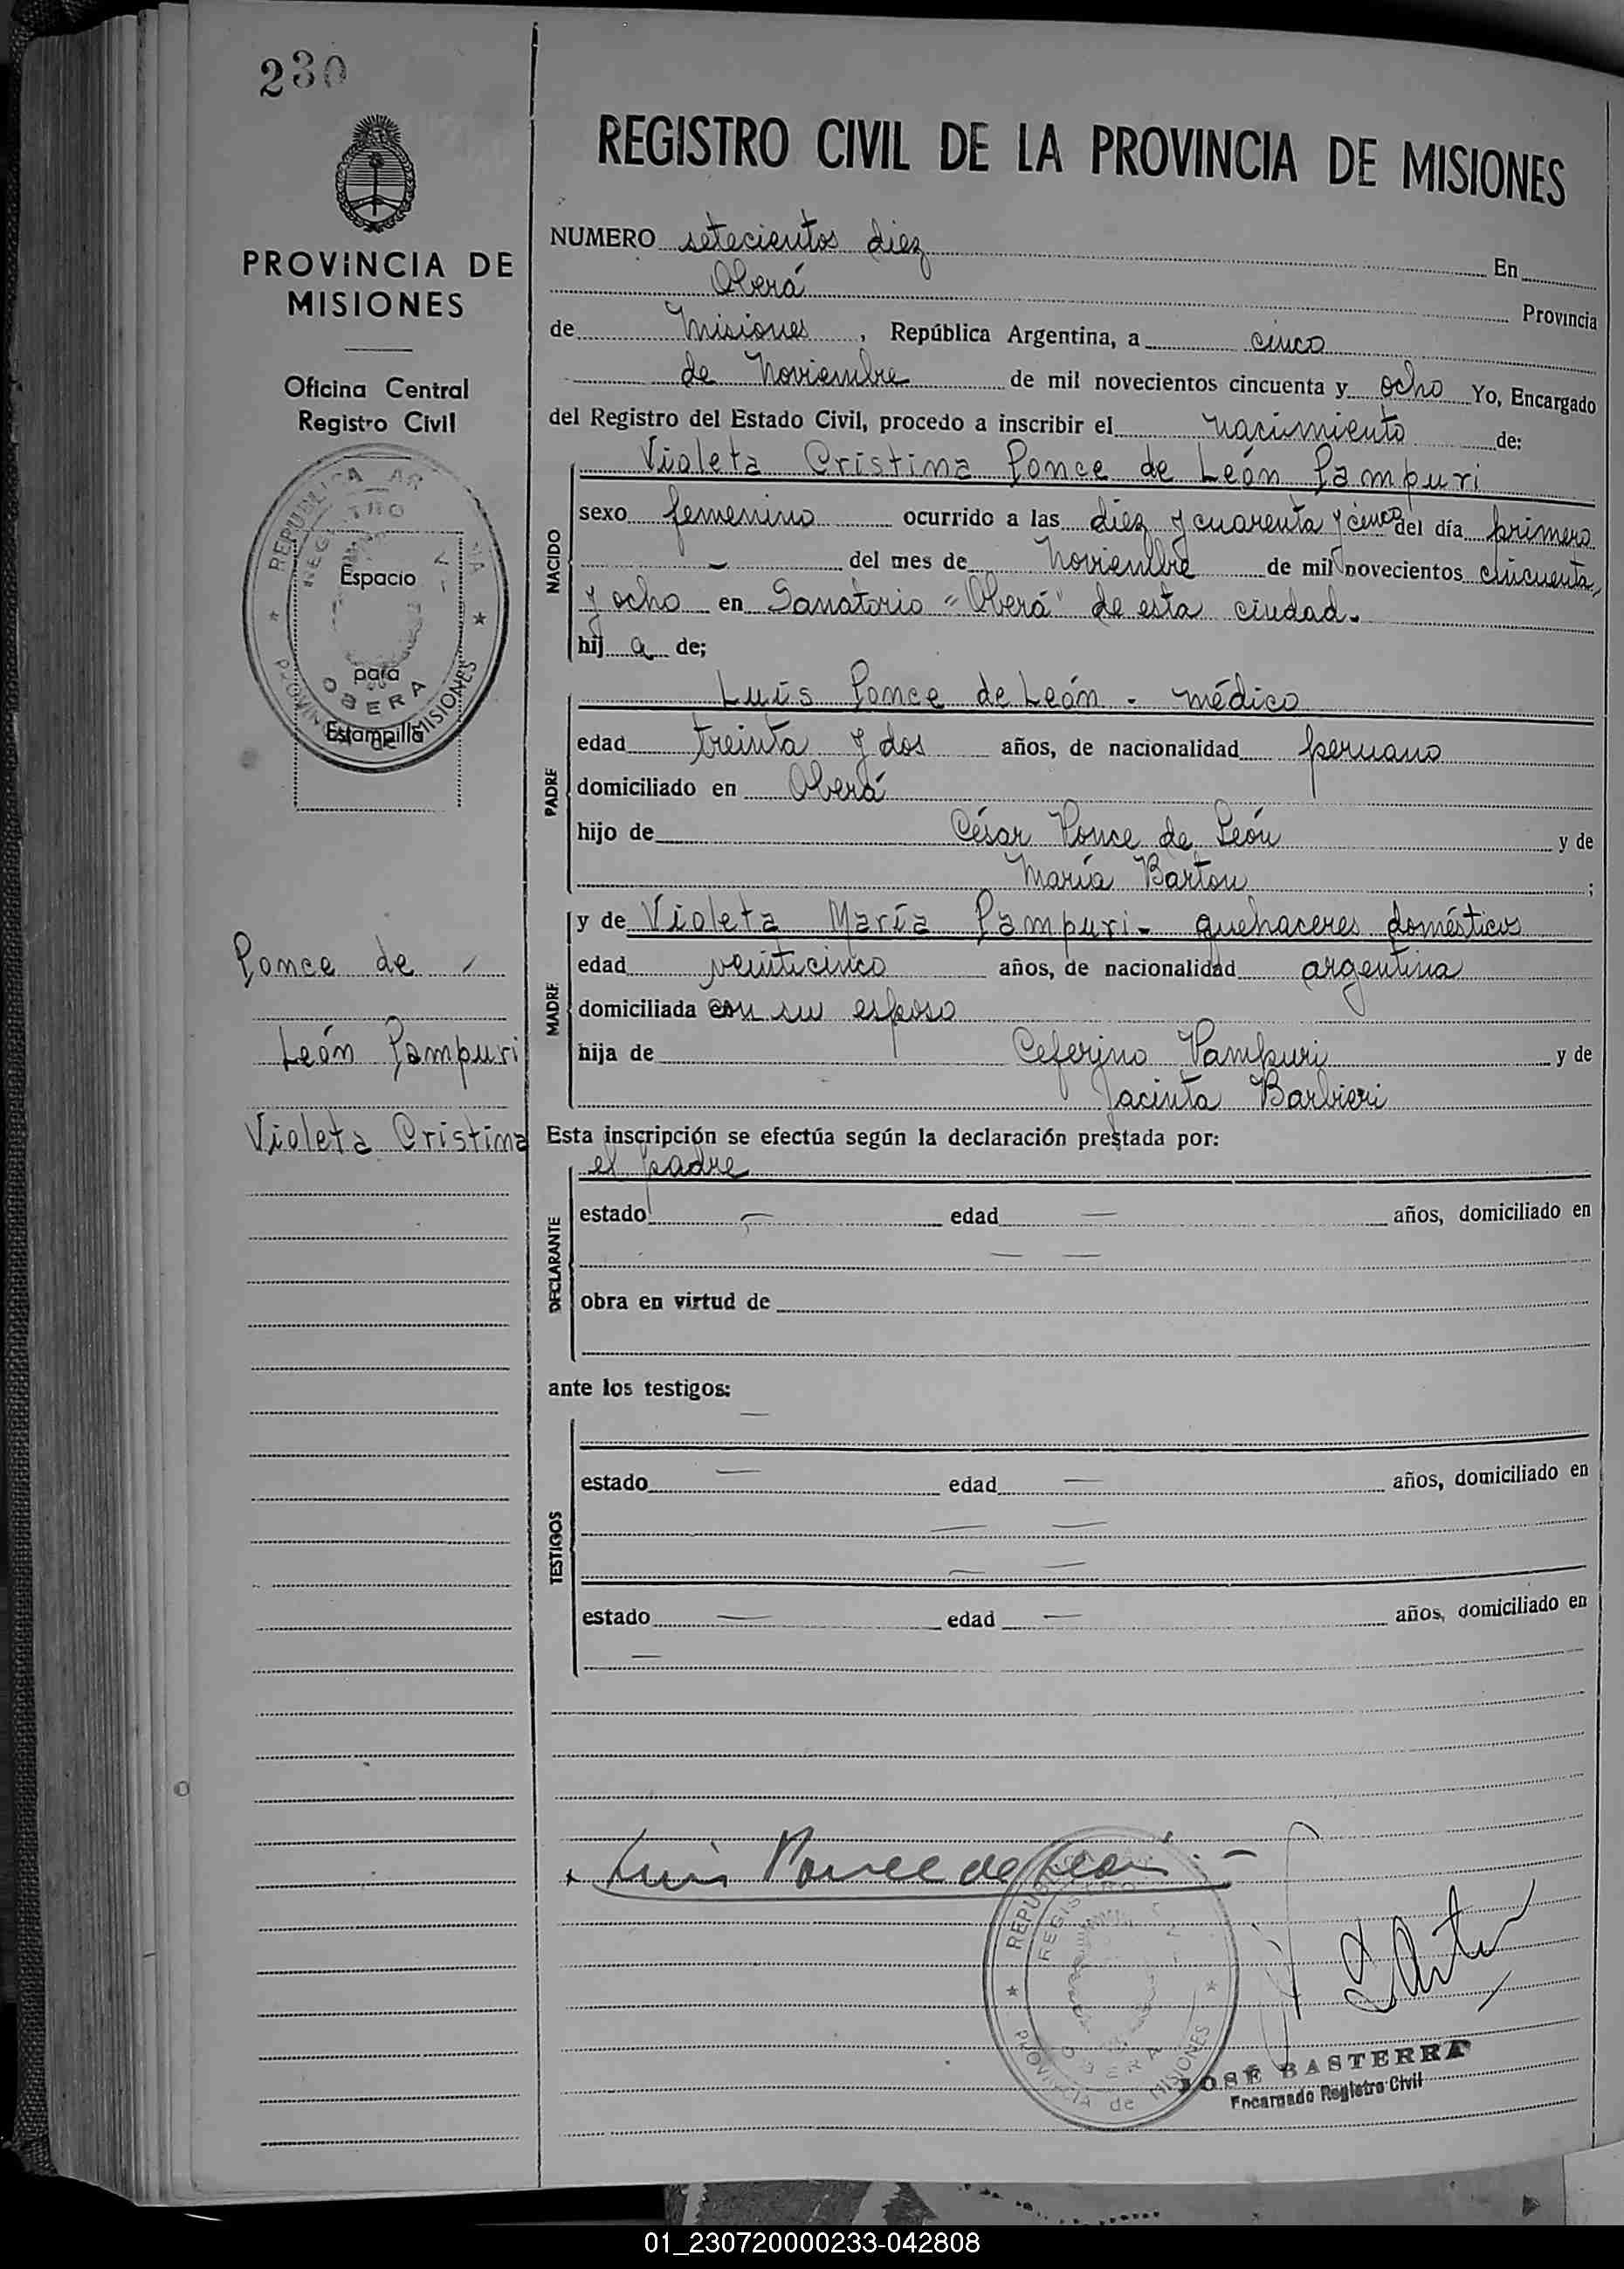 230
PROVINCIA DE
MISIONES
Oficina Central
Registro Civil
Espacio
para
Estampilla
REPUBLICA AR
OBERA
MISIONES
Ponce de -
León Pampuri
Violeta Cristina
REGISTRO CIVIL DE LA PROVINCIA DE MISIONES
NUMERO setecientos diez En
Oberá Provincia
de Misiones, República Argentina, a cinco
de Noviembre de mil novecientos cincuenta y ocho Yo, Encargado
del Registro del Estado Civil, procedo a inscribir el nacimiento de:
NACIDO
Violeta Cristina Ponce de León Pampuri
sexo femenino ocurrido a las diez y cuarenta y cinco del día primero
- del mes de Noviembre de mil novecientos cincuenta
y ocho en Sanatorio "Oberá" de esta ciudad.
hij a de;
PADRE
Luis Ponce de León - médico
edad treinta y dos años, de nacionalidad peruano
domiciliado en Oberá
hijo de César Ponce de León y de
María Barton;
MADRE
y de Violeta María Pampuri - quehaceres domésticos
edad veinticinco años, de nacionalidad argentina
domiciliada con su esposo
hija de Ceferino Pampuri y de
Jacinta Barbieri
Esta inscripción se efectúa según la declaración prestada por:
DECLARANTE
el padre
estado - edad - años, domiciliado en
- -
obra en virtud de
ante los testigos:
-
TESTIGOS
estado - edad - años, domiciliado en
- -
- -
estado - edad - años, domiciliado en
-
Luis Ponce de León.-
REPUB
REGISTRO
OBERA
PROVINCIA de MISIONES
JOSÉ BASTERRA
Encargado Registro Civil
01_230720000233-042808